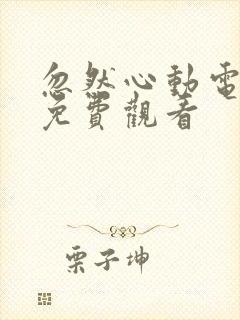 忽然心動電
免費觀看
栗子坤